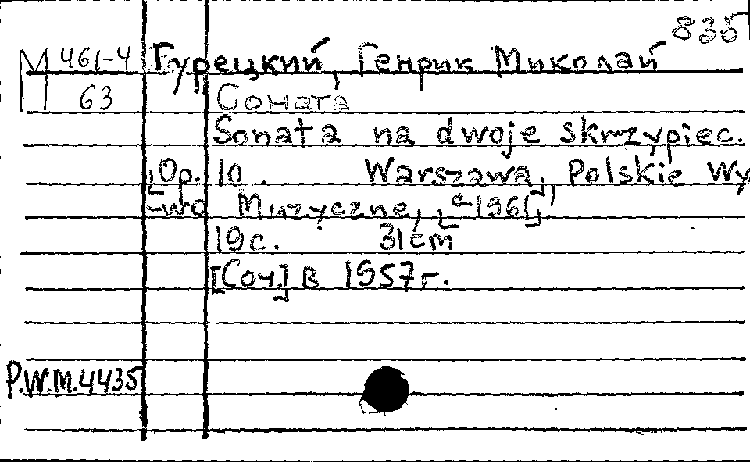 835
М 461-4 Гурецкий, Генрик Миколай
63 Соната
Sonata na dwoje skrzypiec.
[Op.] 10. Warszawa, Polskie Wy-
-wo Muzyczne, [c1961].
19c. 31cm
[Соч.] в 1957г.
P.W.M.4435